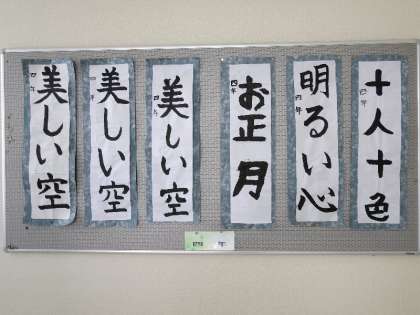 十人十色
四年
明るい心
四年
お正月
四年
美しい空
四年
美しい空
四年
美しい空
四年
四年